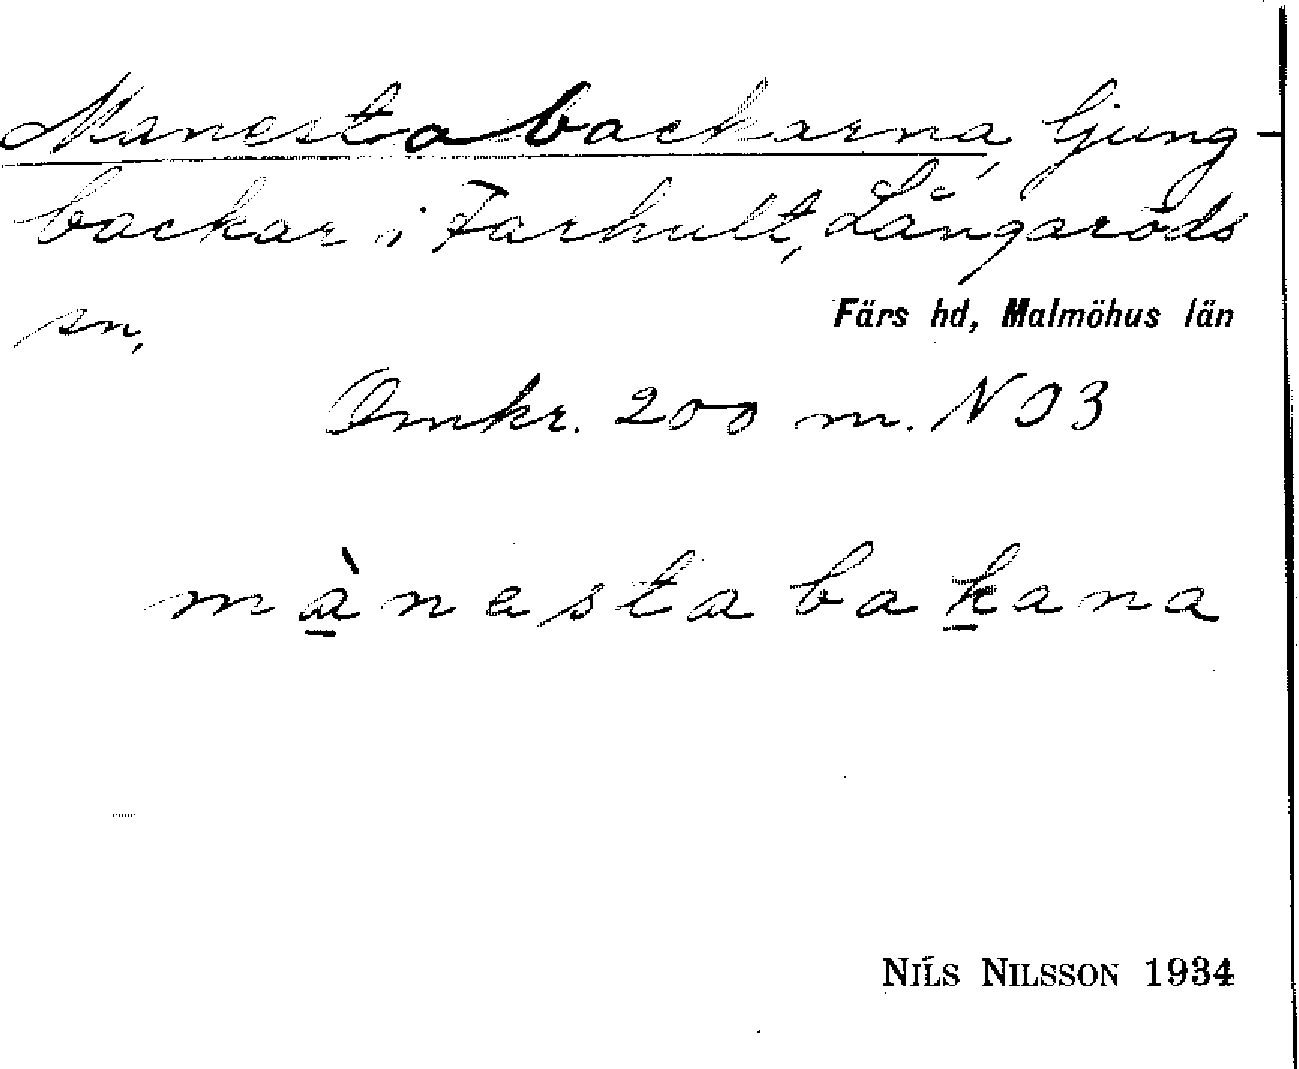 Manestabackarna, ljung-
backar i Farhult, Långaröds
sn,
Färs hd, Malmöhus län
Omkr. 200 m. N 03
mànestabakana
NILS NILSSON 1934